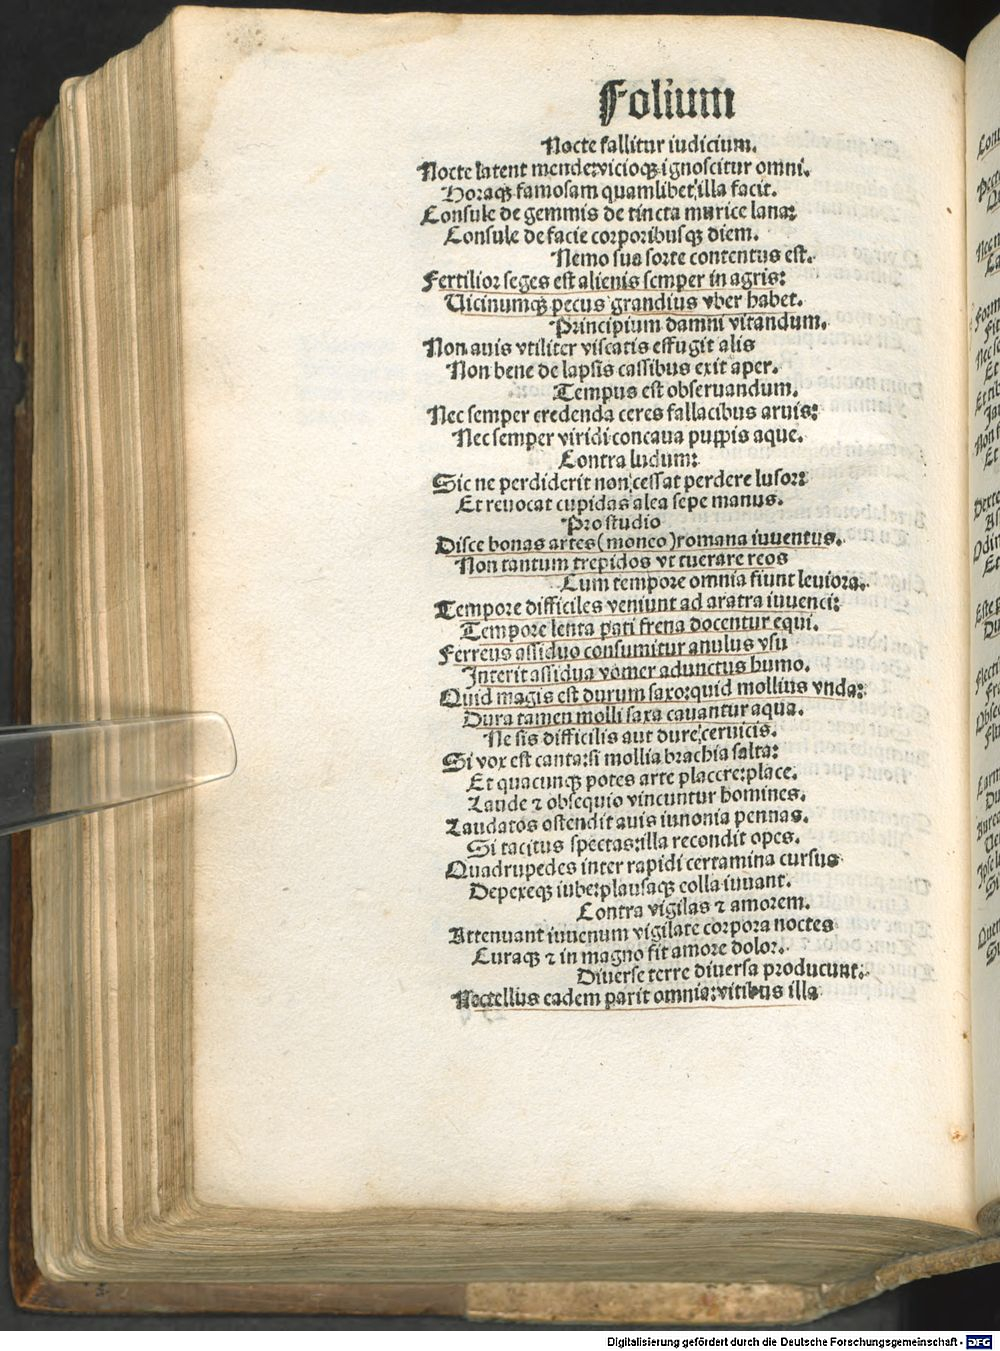 Folium
Nocte fallitur iudicium.
Nocte latent mende: vicioqꝫ ignoscitur omni.
Horaqꝫ famosam quamlibet illa facit.
Consule de gemmis de tincta murice lana:
Consule de facie corporibusqꝫ diem.
Nemo sua sorte contentus est.
Fertilior seges est alienis semper in agris:
Uicinumqꝫ pecus grandius vber habet.
Principium damni vitandum.
Non auis vtiliter viscatis effugit alis
Non bene de lapsis cassibus exit aper.
Tempus est obseruandum.
Nec semper credenda ceres fallacibus aruis:
Nec semper viridi concaua puppis aque.
Contra ludum:
Sic ne perdiderit non cessat perdere lusor:
Et reuocat cupidas alea sepe manus.
Pro studio
Disce bonas artes (moneo) romana iuuentus.
Non tantum trepidos vt tuerare reos
Cum tempore omnia fiunt leuiora.
Tempore difficiles veniunt ad aratra iuuenci:
Tempore lenta pati frena docentur equi.
Ferreus assiduo consumitur anulus vsu
Interit assidua vomer aduncus humo.
Quid magis est durum saxo: quid mollius vnda:
Dura tamen molli saxa cauantur aqua.
Ne sis difficilis aut dure ceruicis.
Si vox est canta: si mollia brachia salta:
Et quacunqꝫ potes arte placere: place.
Laude ⁊ obsequio vincuntur homines.
Laudatos ostendit auis iunonia pennas.
Si tacitus spectas: illa recondit opes.
Quadrupedes inter rapidi certamina cursus
Depexeqꝫ iube: plausaqꝫ colla iuuant.
Contra vigilas ⁊ amorem.
Attenuant iuuenum vigilate corpora noctes
Curaqꝫ ⁊ in magno fit amore dolor.
Diuerse terre diuersa producunt.
Nec tellus eadem parit omnia: vitibus illa
Digitalisierung gefördert durch die Deutsche Forschungsgemeinschaft - DFG